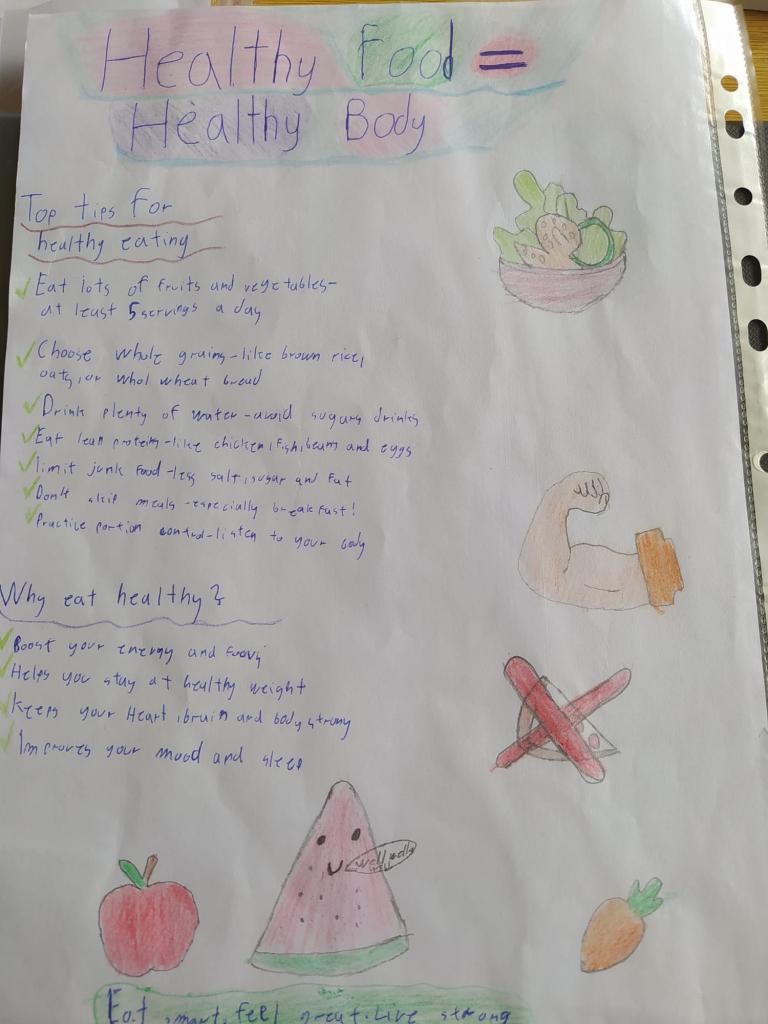 Healthy Food =
Healthy Body
Top tips for
healthy eating
Eat lots of fruits and vegetables-
at least 5 servings a day
Choose whole grains-like brown rice,
oats, or whol wheat bread
Drink plenty of water-avoid sugary drinks
Eat lean protein-like chicken, fish, beans and eggs
limit junk food-less salt, sugar and fat
Don't skip meals-especially breakfast!
Practice portion control-listen to your body
Why eat healthy?
Boost your energy and
Helps you stay at healthy weight
Keeps your Heart, brain and body strong
Improves your mood and sleep
well
Eat smart. feel great. Live strong